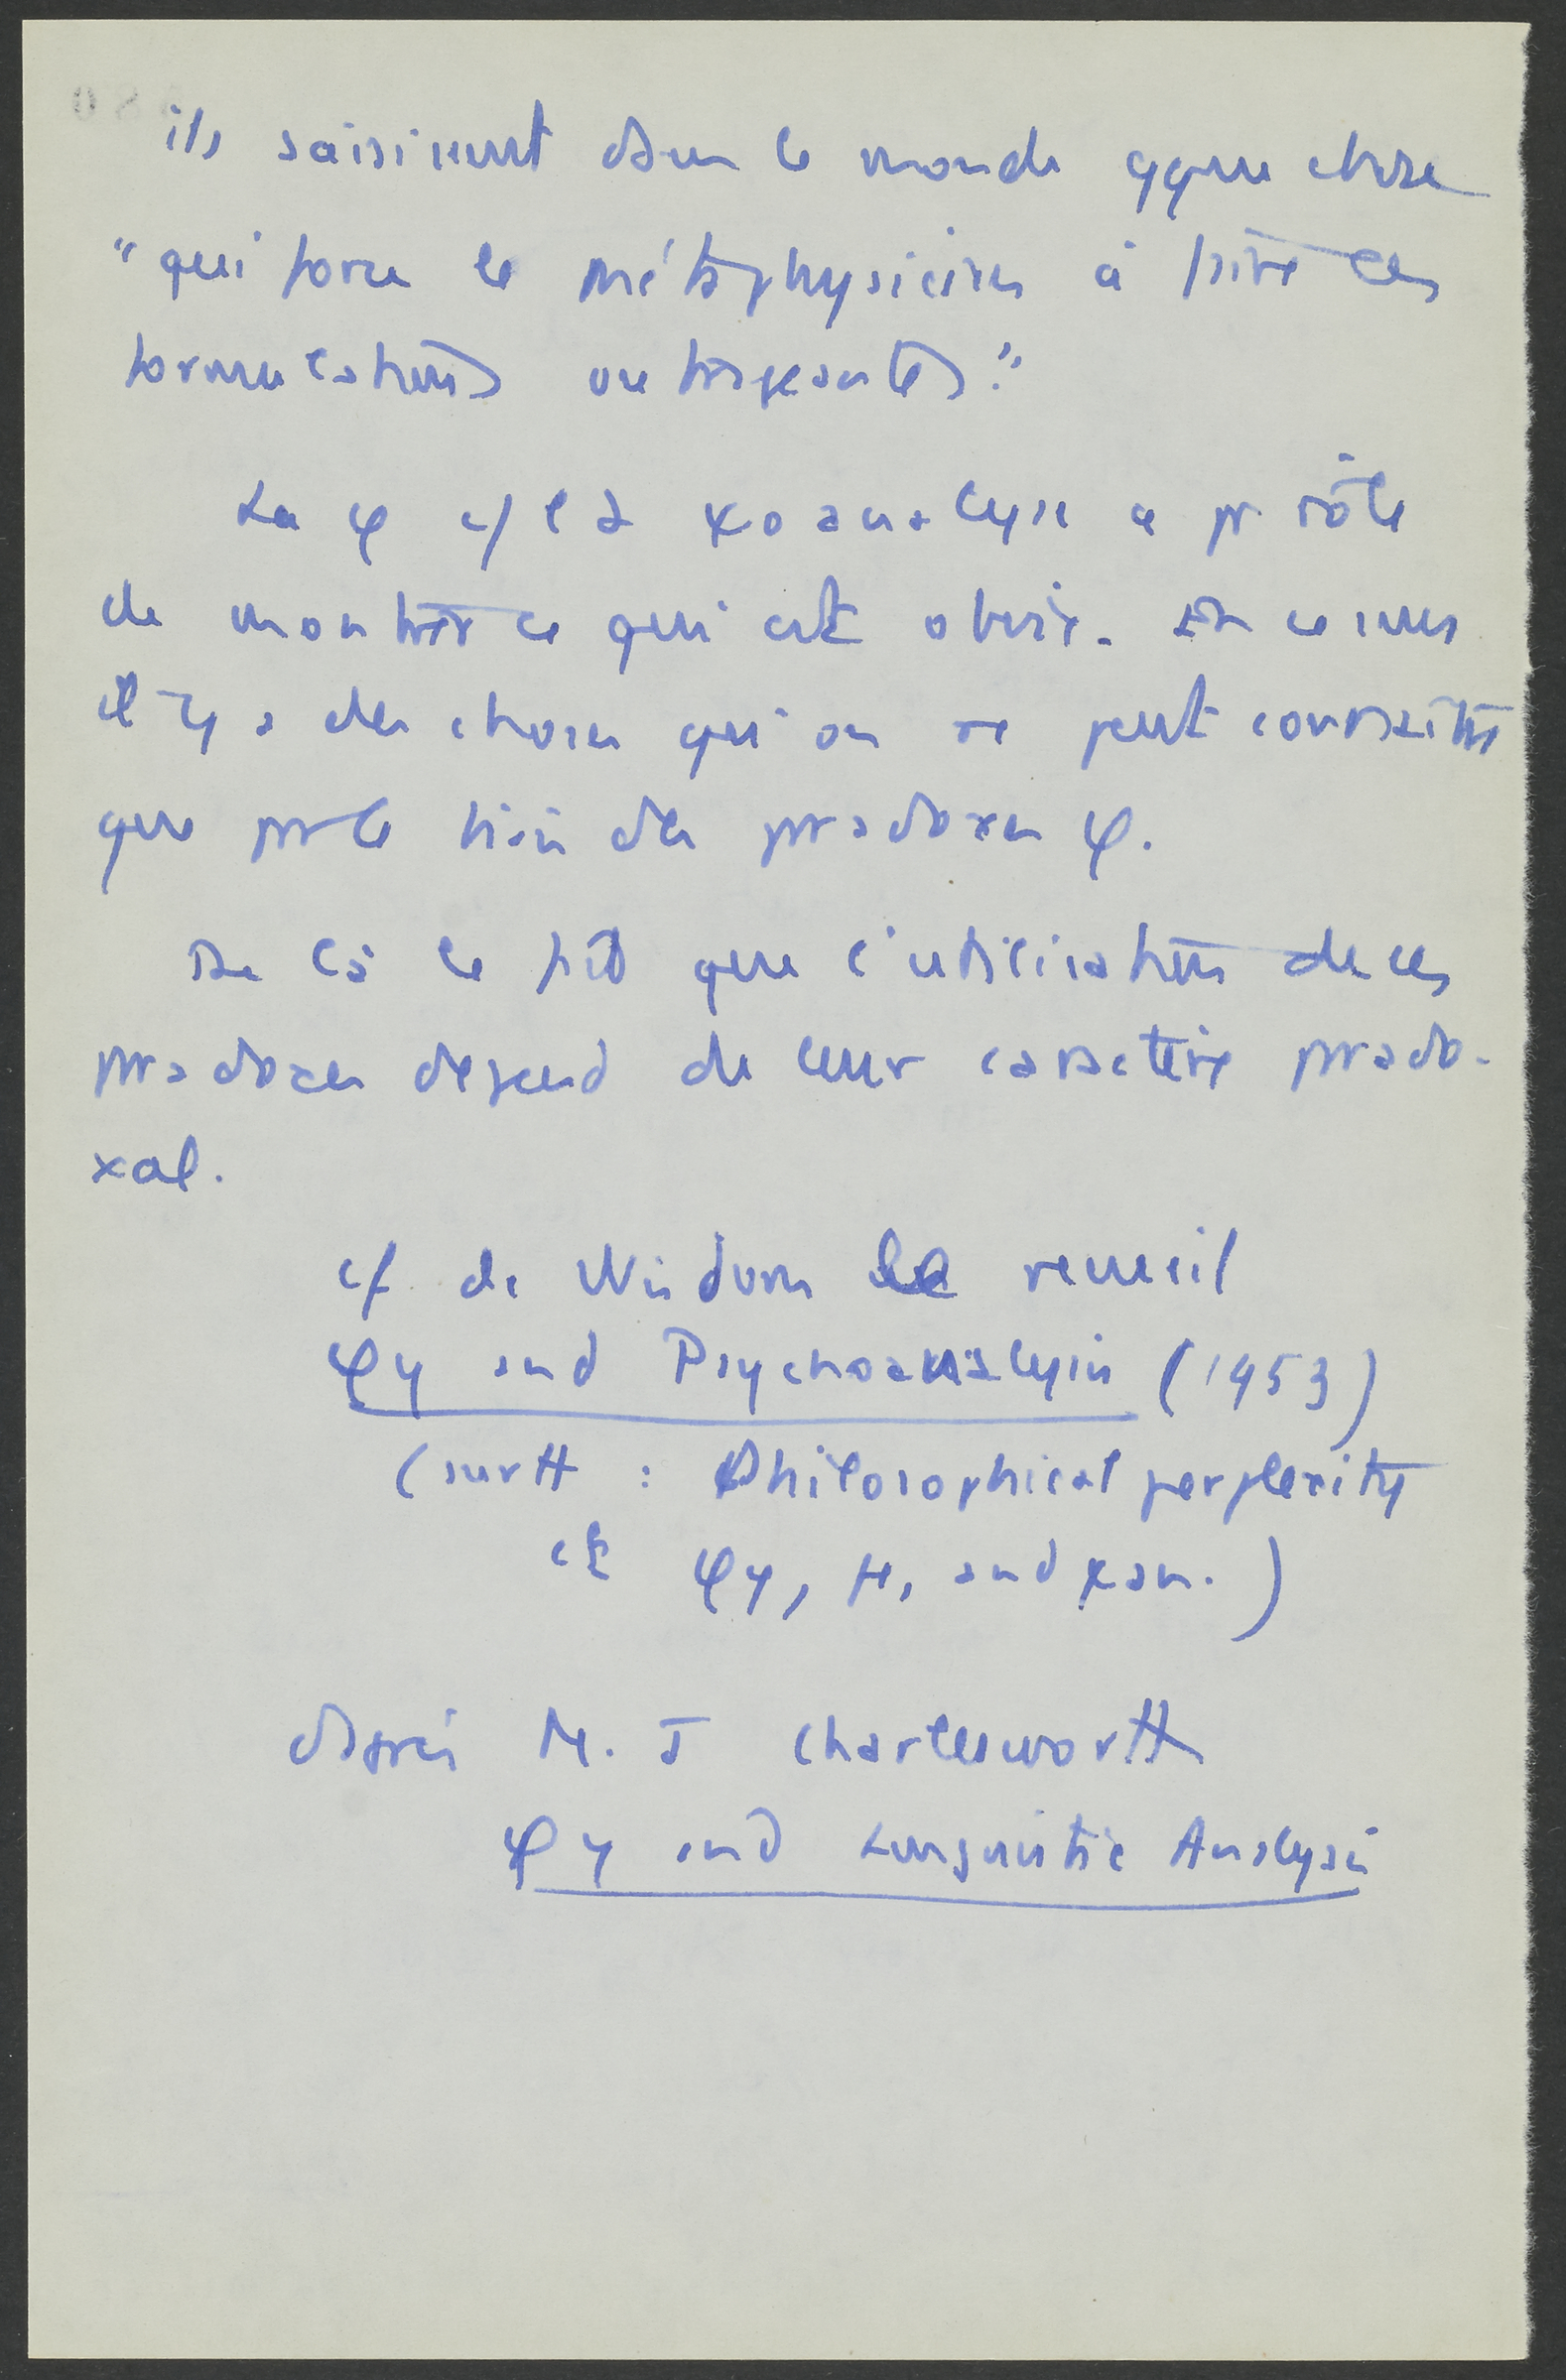 ils saisissent dans le monde qque chose
"qui force le métaphysicien à faire ces
formulations outrageantes."
La φ c/ la ψoanalyse a pr rôle
de montrer ce qui est obvie. En ce sens
il y a des choses qu'on ne peut connaître
que par le biais des pradoxes φ.
De là le fait que l'utilisation de ces
pradoxes dépend de leur caractère prado-
xal.
cf. de Wisdom le recueil
φy and Psychoanalysis (1953)
(surtt : Philosophical perplexity
et φy, M, and ψan.)
D'après M. J Charlesworth
φy and Linguistic Analysis